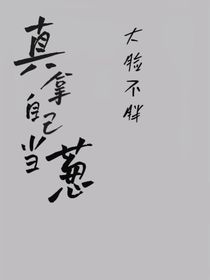 大脸不胖
真拿自己当葱